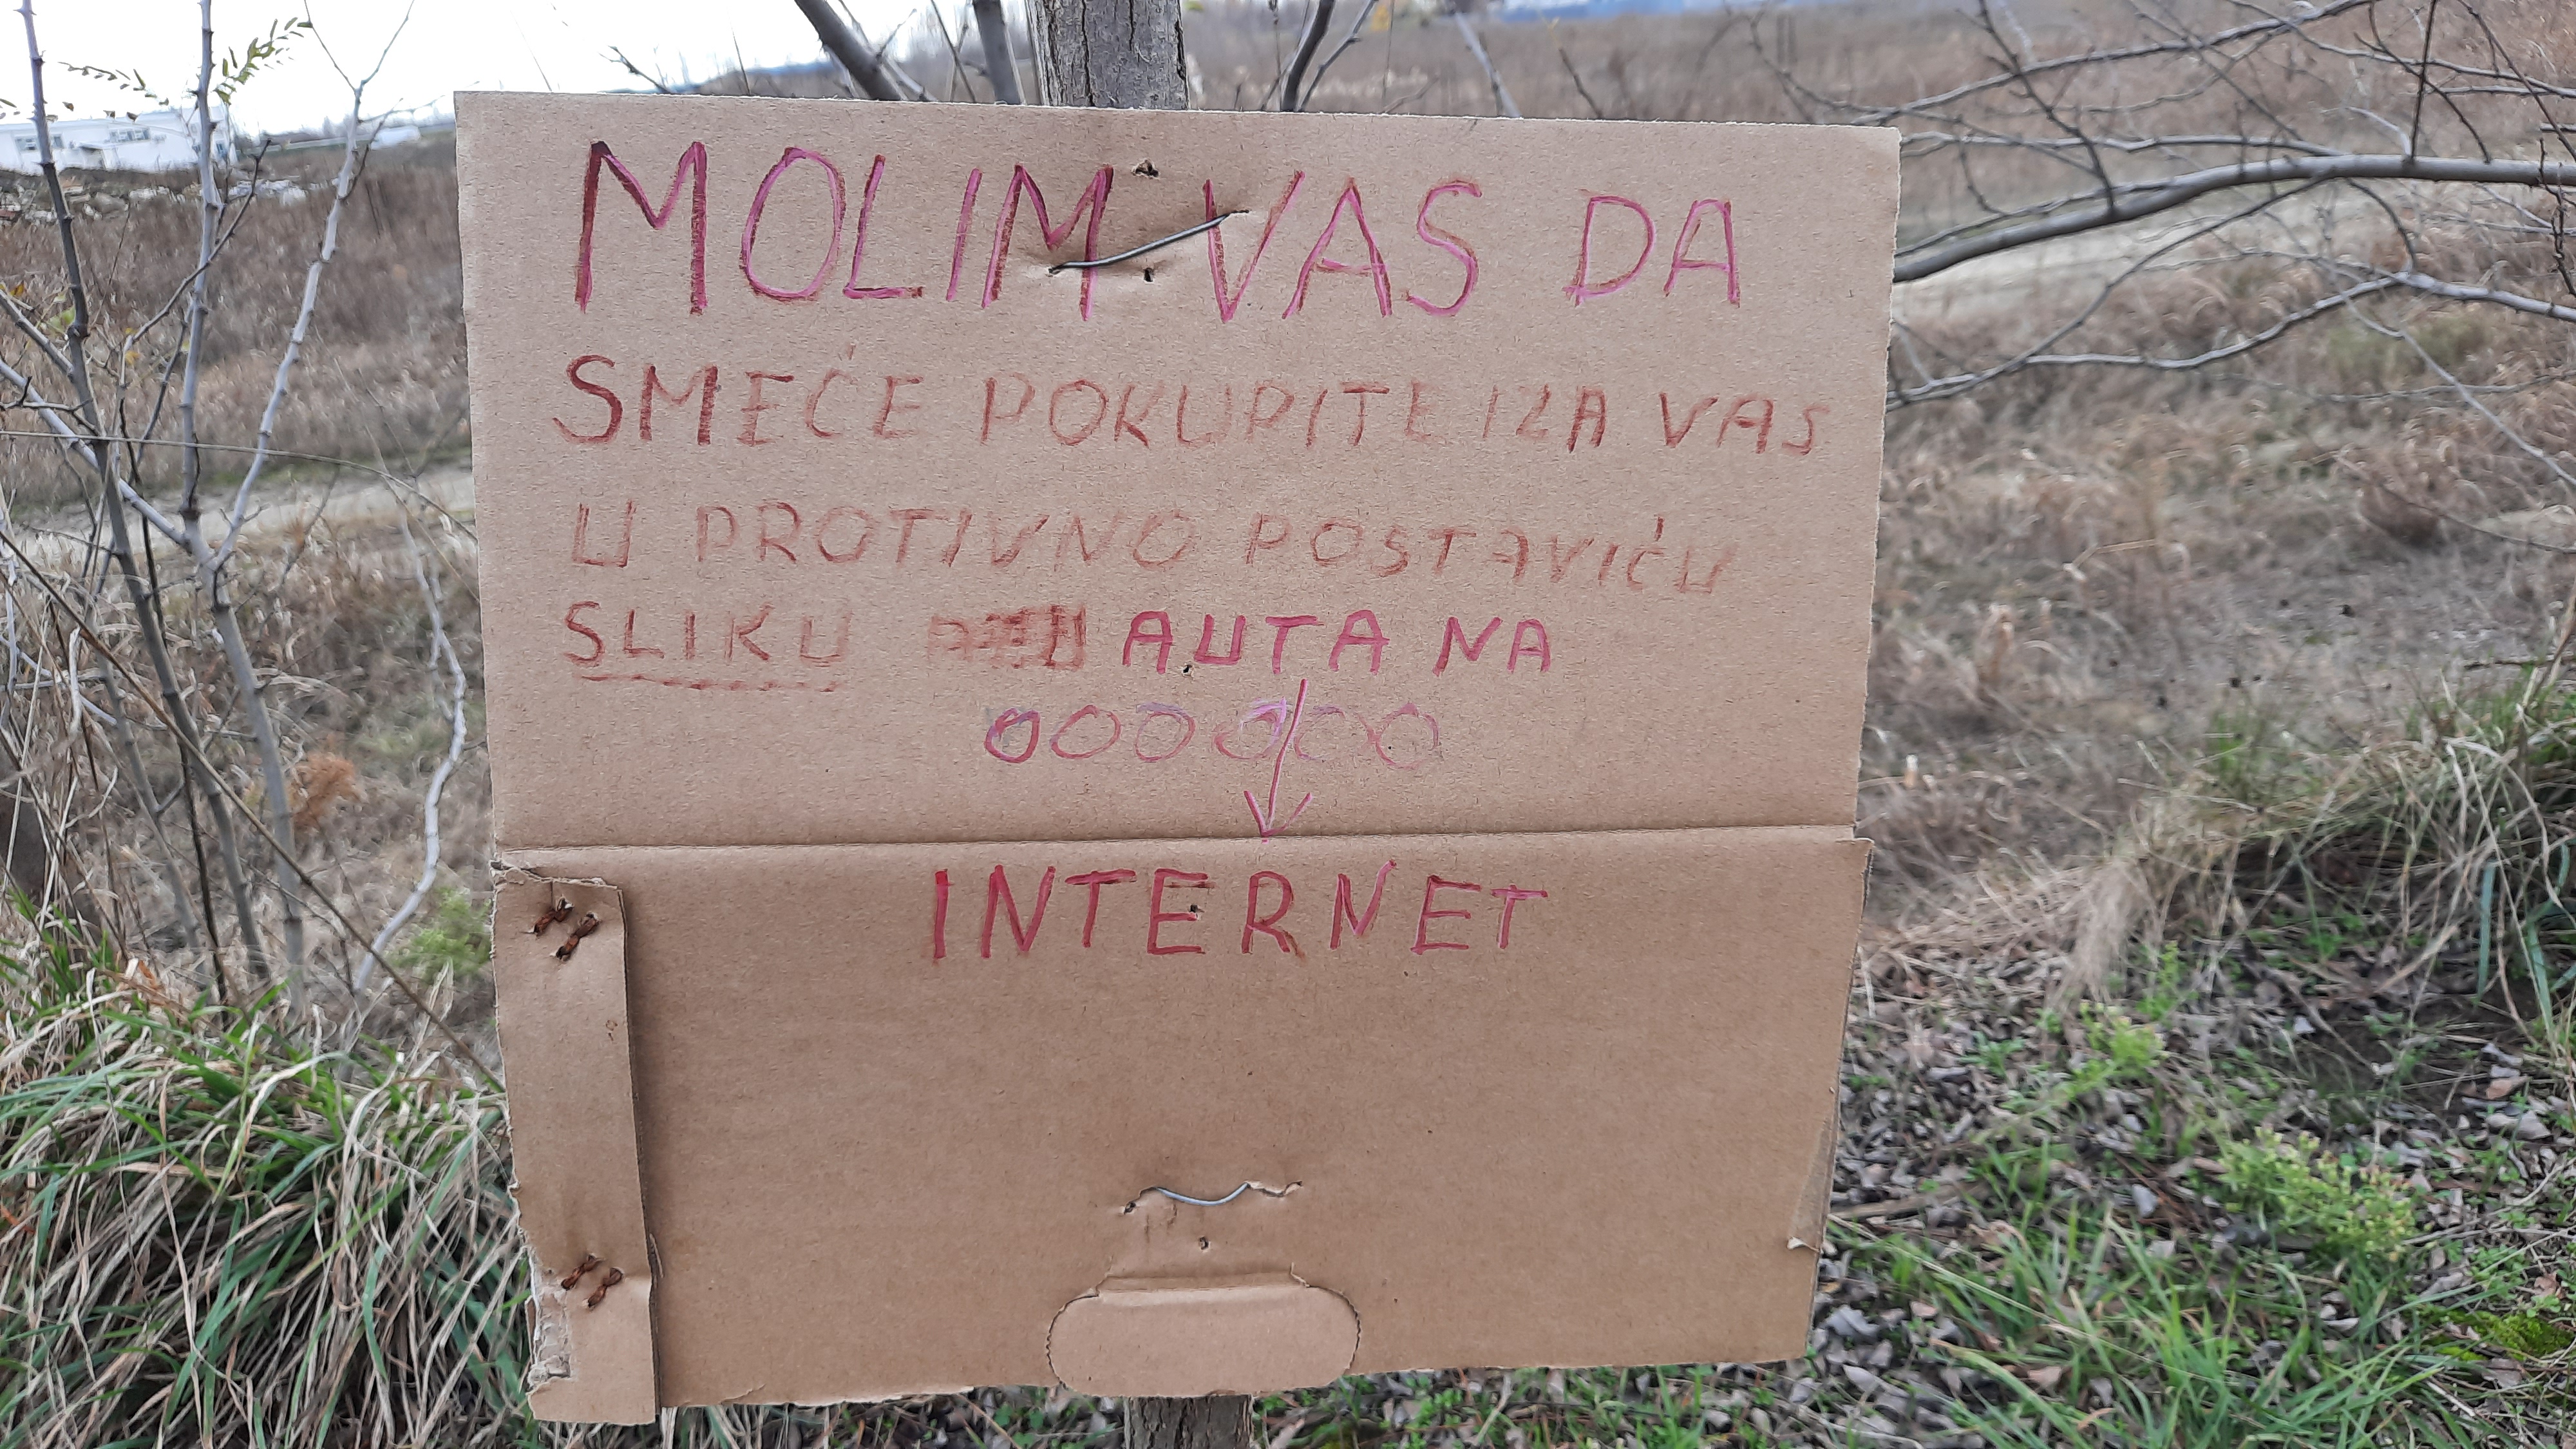 MOLIM VAS DA
SMEĆE POKUPITE IZA VAS
U PROTIVNO POSTAVIĆU
SLIKU AUTA NA
OOOOOO
INTERNET